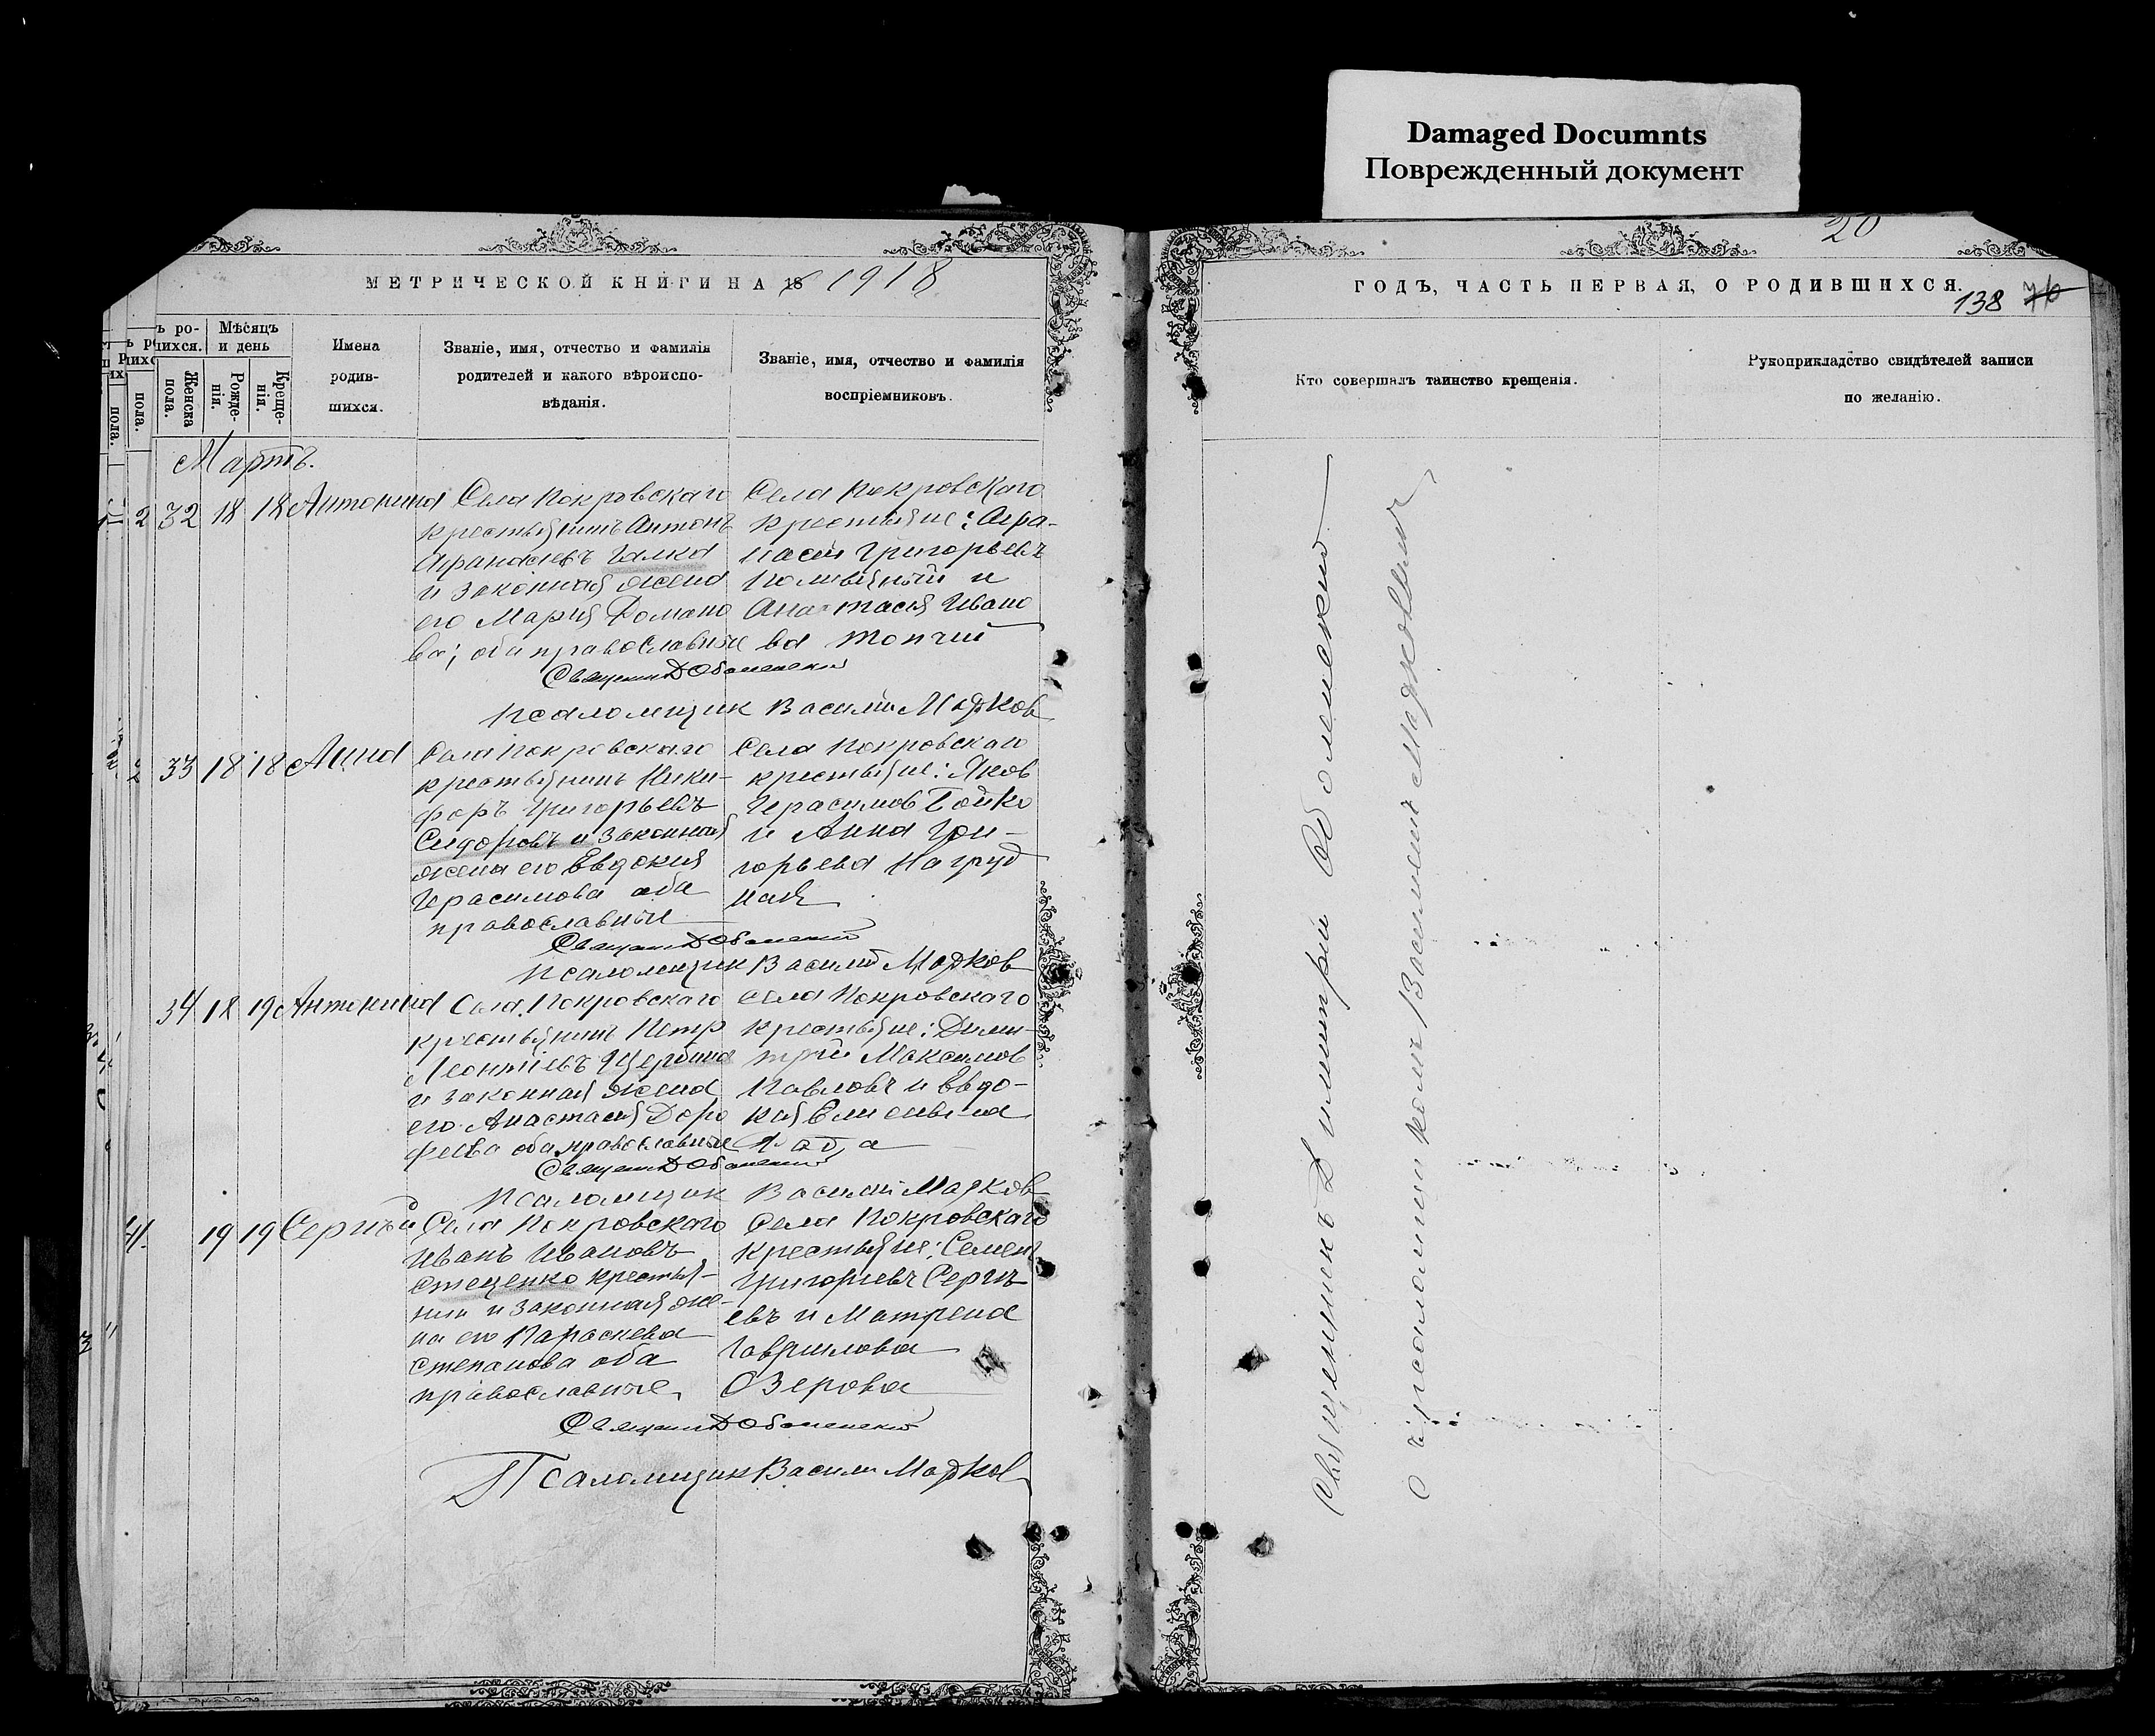 Damaged Documnts
Поврежденный документ
20
МЕТРИЧЕСКОЙ КНИГИ НА 18 1918
ГОДЪ, ЧАСТЬ ПЕРВАЯ, О РОДИВШИХСЯ.
138 76
ъ ро-
щихся.
Женска
пола.
Мѣсяцъ
и день
Рожде-
нія.
Креще-
нія.
Имена
родив-
шихся.
Званіе, имя, отчество и фамилія
родителей и какого вѣроиспо-
вѣданія.
Званіе, имя, отчество и фамилія
воспріемниковъ.
Кто совершалъ таинство крещенія.
Рукоприкладство свидѣтелей записи
по желанію.
Мартъ.
32 18 18 Антонина
Села Покровскаго
крестьянинъ Антонъ
Афанасіевъ Галка
и законная жена
его Марія Романо
ва; оба православные
Села Покровскаго
крестьяне: Афа-
насій Григорьевъ
и
Анастасія Ивано
ва Топчий
Священ Д Оболенский
Псаломщик Василий Марков
33 18 18 Анна
Села Покровскаго
крестьянинъ Ники-
форъ Григорьевъ
Сидоровъ и законная
жена его Евдокия
Герасимова оба
православные
Села Покровскаго
крестьяне: Яков
Герасимов Бойко
и Анна Гри-
горьева Нагруд
ная
Священ Д Оболенский
Псаломщик Василий Марков
34 18 19 Антонина
Села Покровскаго
крестьянинъ Петр
Леонтіевъ Щербина
и законная жена
его Анастасия Доро
феева оба православные
Села Покровскаго
крестьяне: Дими-
трий Максимов
Павловъ и Евдо-
кия
Священ Д Оболенский
Псаломщик Василий Марков
4 19 19 Сергѣй
Села Покровскаго
Иванъ Ивановъ
Стеценко крестья-
нин и законная же-
на его Параскева
Степанова оба
православные
Села Покровскаго
крестьяне: Семен
Григорьевъ Сергѣ-
евъ и Матрена
Гаврилова
Озерова
Священ Д Оболенский
Псаломщик Васили Марков
Священникъ Димитрий Оболенский
с псаломщиком Василием Марковым